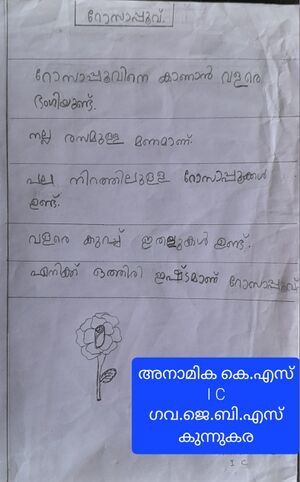 റോസാപ്പൂവ്.
റോസാപ്പൂവിനെ കാണാൻ വളരെ
ഭംഗിയുണ്ട്.
നല്ല രസമുള്ള മണമാണ്.
പല നിറത്തിലുള്ള റോസാപ്പൂക്കൾ
ഉണ്ട്.
വളരെ കുറച്ച് ഇതളുകൾ ഉണ്ട്.
എനിക്ക് ഒത്തിരി ഇഷ്ടമാണ് റോസാപ്പൂവ്
അനാമിക കെ.എസ്
I C
ഗവ.ജെ.ബി.എസ്
കുന്നുകര
I C